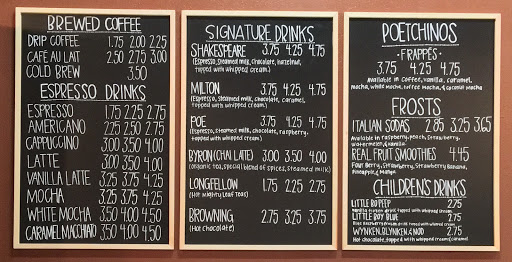 BREWED COFFEE
DRIP COFFEE 1.75 2.00 2.25
CAFÉ AU LAIT 2.50 2.75 3.00
COLD BREW 3.50
ESPRESSO DRINKS
ESPRESSO 1.75 2.25 2.75
AMERICANO 2.25 2.50 2.75
CAPPUCCINO 3.00 3.50 4.00
LATTE 3.00 3.50 4.00
VANILLA LATTE 3.25 3.75 4.25
MOCHA 3.25 3.75 4.25
WHITE MOCHA 3.50 4.00 4.50
CARAMEL MACCHIATO 3.50 4.00 4.50
SIGNATURE DRINKS
SHAKESPEARE 3.75 4.25 4.75
(Espresso, steamed milk, chocolate, hazelnut,
topped with whipped cream)
MILTON 3.75 4.25 4.75
(Espresso, steamed milk, chocolate, caramel,
topped with whipped cream)
POE 3.75 4.25 4.75
(Espresso, steamed milk, chocolate, raspberry,
topped with whipped cream)
BYRON (CHAI LATTE) 3.00 3.50 4.00
(organic tea, special blend of spices, steamed milk)
LONGFELLOW 1.75 2.25 2.75
(Hot Mighty Leaf Teas)
BROWNING 2.75 3.25 3.75
(Hot chocolate)
POETCHINOS
-FRAPPÉS-
3.75 4.25 4.75
Available in coffee, vanilla, caramel,
mocha, white mocha, toffee mocha, & coconut mocha
FROSTS
ITALIAN SODAS 2.85 3.25 3.65
Available in raspberry, peach, strawberry,
watermelon, & vanilla
REAL FRUIT SMOOTHIES 4.45
Four Berry, Strawberry, Strawberry Banana,
Pineapple, & Mango
CHILDREN'S DRINKS
LITTLE BO PEEP 2.75
Vanilla steamed milk topped with whipped cream
LITTLE BOY BLUE 2.75
Blue Raspberry Italian drink topped with whipped cream
WYNKEN, BLYNKEN, & NOD 2.75
Hot chocolate, topped with whipped cream & caramel